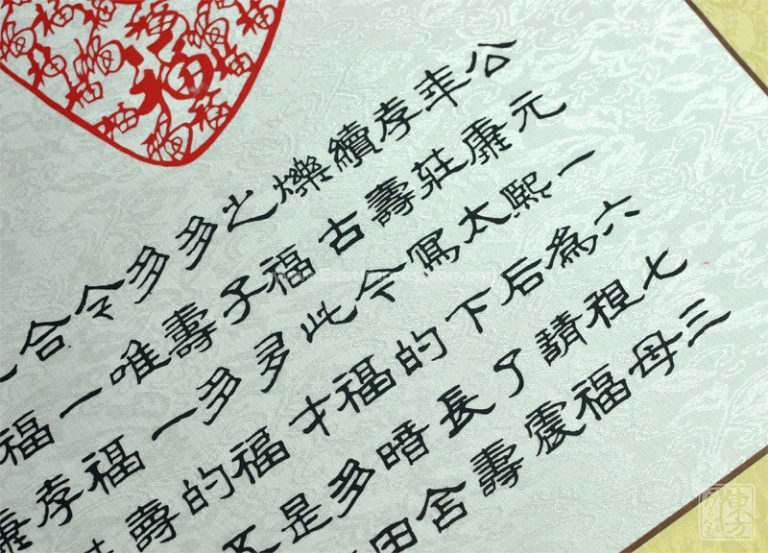 公元一六七三
年康熙為祖母
孝莊太后請福
續壽寫下了震
爍古今的長壽
之福此福暗含
多子多才多田
多壽多福是
令唯一的
合一福壽
福孝
福
東方